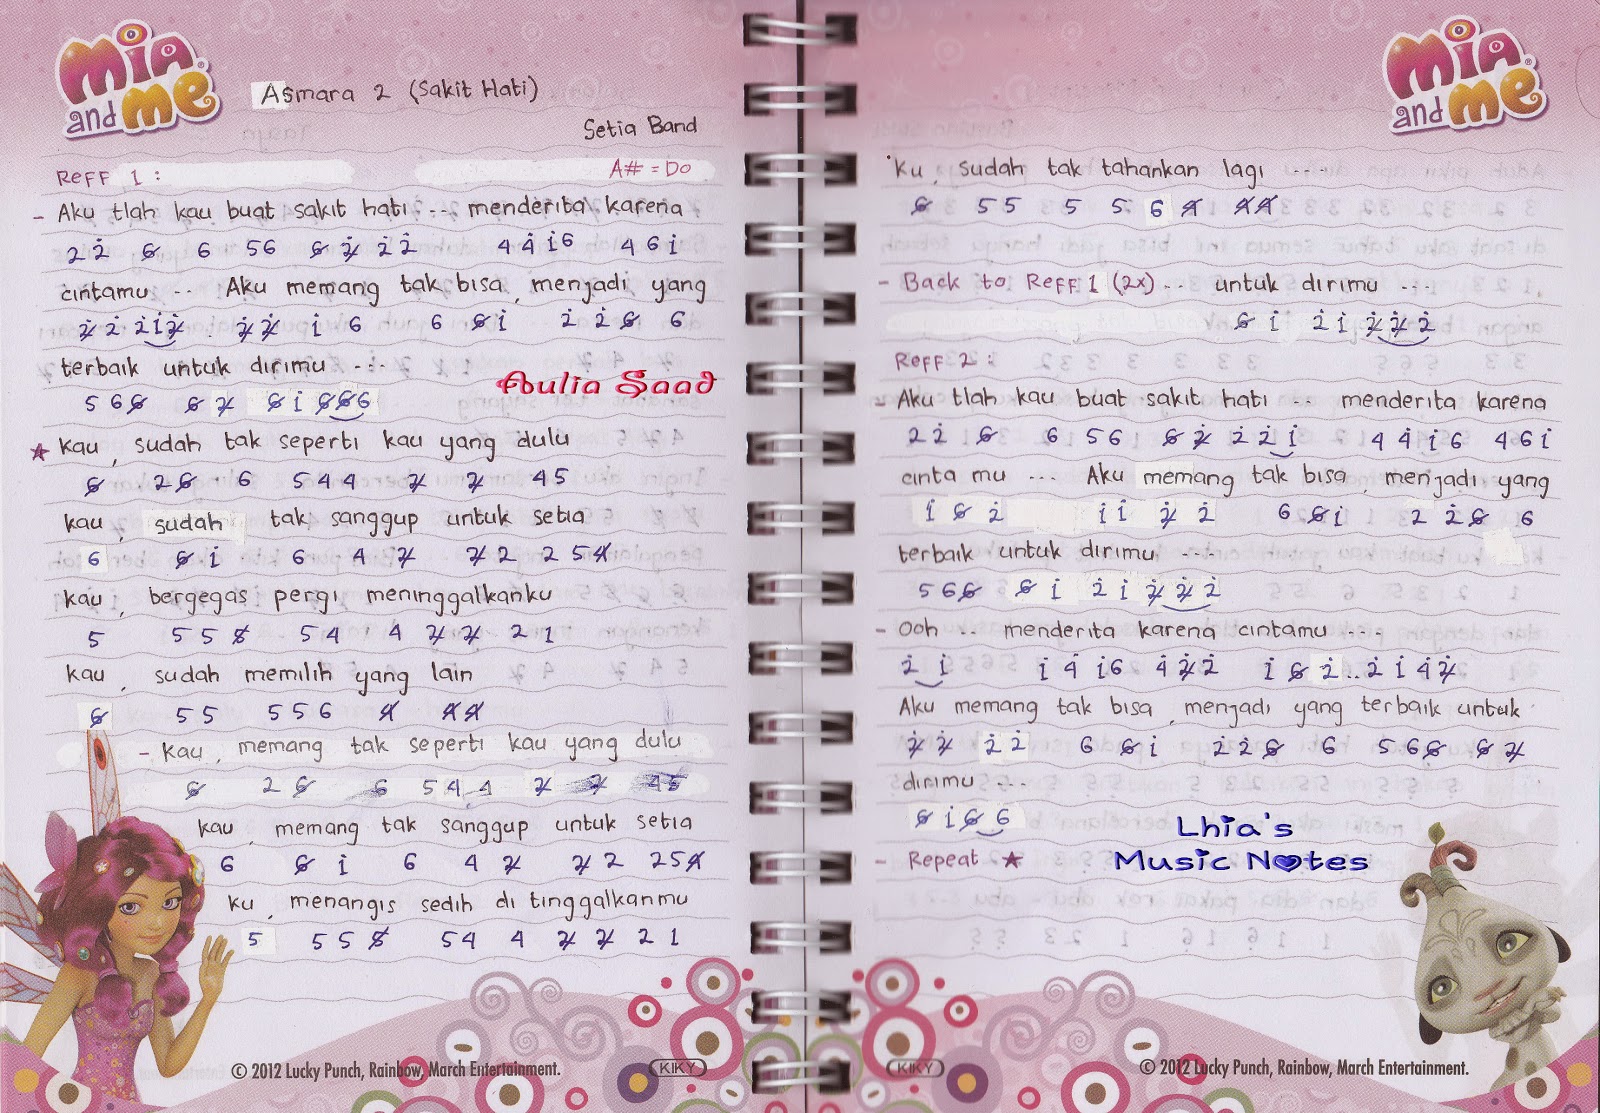 mia and me
Asmara 2 (Sakit Hati)
Setia Band
Reff 1 :
A# = Do
- Aku tlah kau buat sakit hati ... menderita karena
2 2̇ 6̸ 6 56 6̸ 2̸̇ 2̇2̇ 4 4̇ i 6 4 6 i
cintamu ... Aku memang tak bisa, menjadi yang
2̸̇ 2̇ 2̇i2̸̇ 2̸̇2̸̇ i 6 6 6̸ i 2̇ 2̇ 6̸ 6
terbaik untuk dirimu ...
5 6 6̸ 6̸ 2̸ 6̸ i 6̸6̸6
Aulia Saad
★ kau, sudah tak seperti kau yang dulu
6̸ 2 6̸ 6 5 4 4 2̸ 2̸ 4 5
kau, sudah tak sanggup untuk setia
6 6̸ i 6 4 2̸ 2̸ 2 2 5 4̸
kau, bergegas pergi meninggalkanku
5 5 5 5̸ 5 4 4 2̸ 2̸ 2 1
kau, sudah memilih yang lain
6̸ 5 5 5 5 6 4̸ 4̸4̸
- kau, memang tak seperti kau yang dulu
6̸ 2 6̸ 6 5 4 4 2̸ 2̸ 4 5
kau, memang tak sanggup untuk setia
6 6̸ i 6 4 2̸ 2̸ 2 2 5 4̸
ku, menangis sedih di tinggalkanmu
5 5 5 5̸ 5 4 4 2̸ 2̸ 2 1
© 2012 Lucky Punch, Rainbow, March Entertainment.
KIKY
mia and me
ku, sudah tak tahankan lagi ...
6̸ 5 5 5 5 6 4̸ 4̸4̸
- Back to Reff 1 (2x) ... untuk dirimu ...
6̸ i 2̇ i 2̸̇ 2̸̇ 2̇
Reff 2 :
- Aku tlah kau buat sakit hati ... menderita karena
2 2̇ 6̸ 6 5 6 6̸ 2̸̇ 2̇ 2̇ i 4 4̇ i 6 4 6 i
cinta mu ... Aku memang tak bisa, menjadi yang
i 6̸ 2̇ i i 2̸̇ 2̇ 6 6̸ i 2 2̇ 6̸ 6
terbaik untuk dirimu ....
5 6 6̸ 6̸ i 2̇ i 2̸̇ 2̸̇ 2̇
- Ooh .. menderita karena cintamu ....
2̇ i i 4̇ i 6 4̇ 2̸̇ 2̇ i 6̸ 2̇ .. 2̇ i 4̇ 2̸̇
Aku memang tak bisa, menjadi yang terbaik untuk
2̸̇ 2̸̇ 2̇ 2̇ 6 6̸ i 2̇ 2̇ 6̸ 6 5 6 6̸ 6̸ 2̸
dirimu ....
6̸ i 6̸ 6
Lhia's
Music Notes
- Repeat ★
KIKY
© 2012 Lucky Punch, Rainbow, March Entertainment.